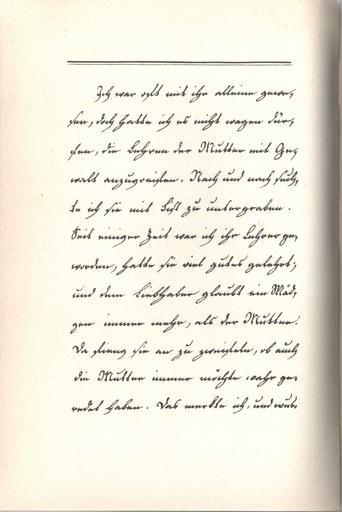 Ich war oft mit ihr alleine gewe-
sen, doch hatte ich es nicht wagen dür-
fen, die Lehren der Mutter mit Ge-
walt anzugreifen. Nach und nach such-
te ich sie mit List zu untergraben.
Seit einiger Zeit war ich ihr Lehrer ge-
worden, hatte sie viel gutes gelehrt;
und dem Liebhaber glaubt ein Mäd-
gen immer mehr, als der Mutter.
Da fieng sie an zu zweifeln, ob auch
die Mutter immer möchte wahr ge-
redet haben. Das merkte ich, und wus-